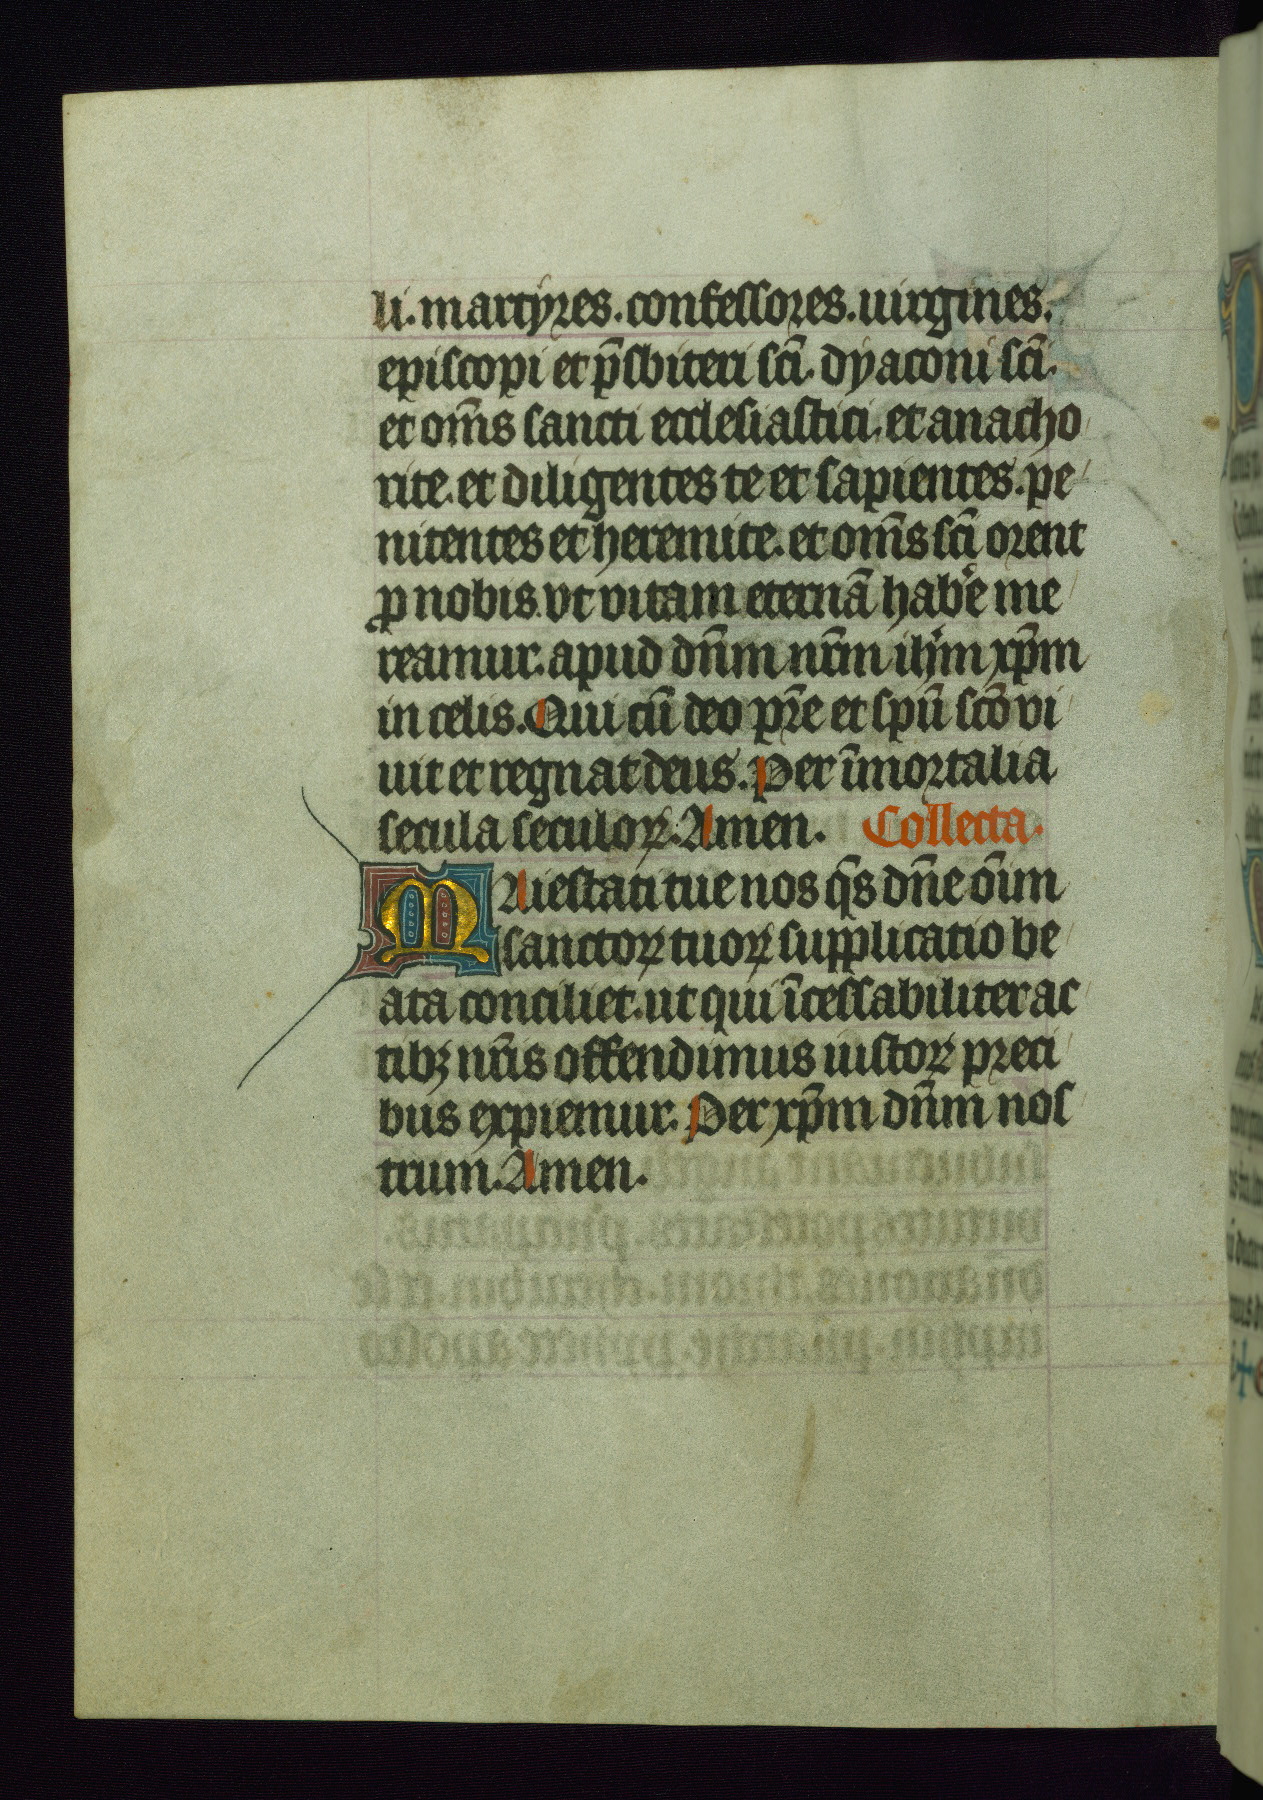 li. martyres. confessores. uirgines.
episcopi et p̄sbiteri sc̄i. dyaconi sc̄i.
et om̄s sancti ecclesiastici. et anacho
rite. et diligentes te et sapientes. pe
nitentes et heremite. et om̄s sc̄i orent
ꝓ nobis. vt vitam eternā hab'e me
reamur. apud dn̄m nr̄m ih'm xp̄m
in celis. Qui cū deo pr̄e et spū sc̄o vi
uit et regnat deus. Per īmortalia
secula seculoꝝ. Amen. Collecta.
MAiestati tue nos q̄s dn̄e oīm
sanctoꝝ tuoꝝ supplicatio be
ata conciliet. ut qui īcessabiliter ac
tibꝫ nr̄is offendimus iustoꝝ preci
bus expiemur. Per xp̄m dn̄m nos
trum. Amen.